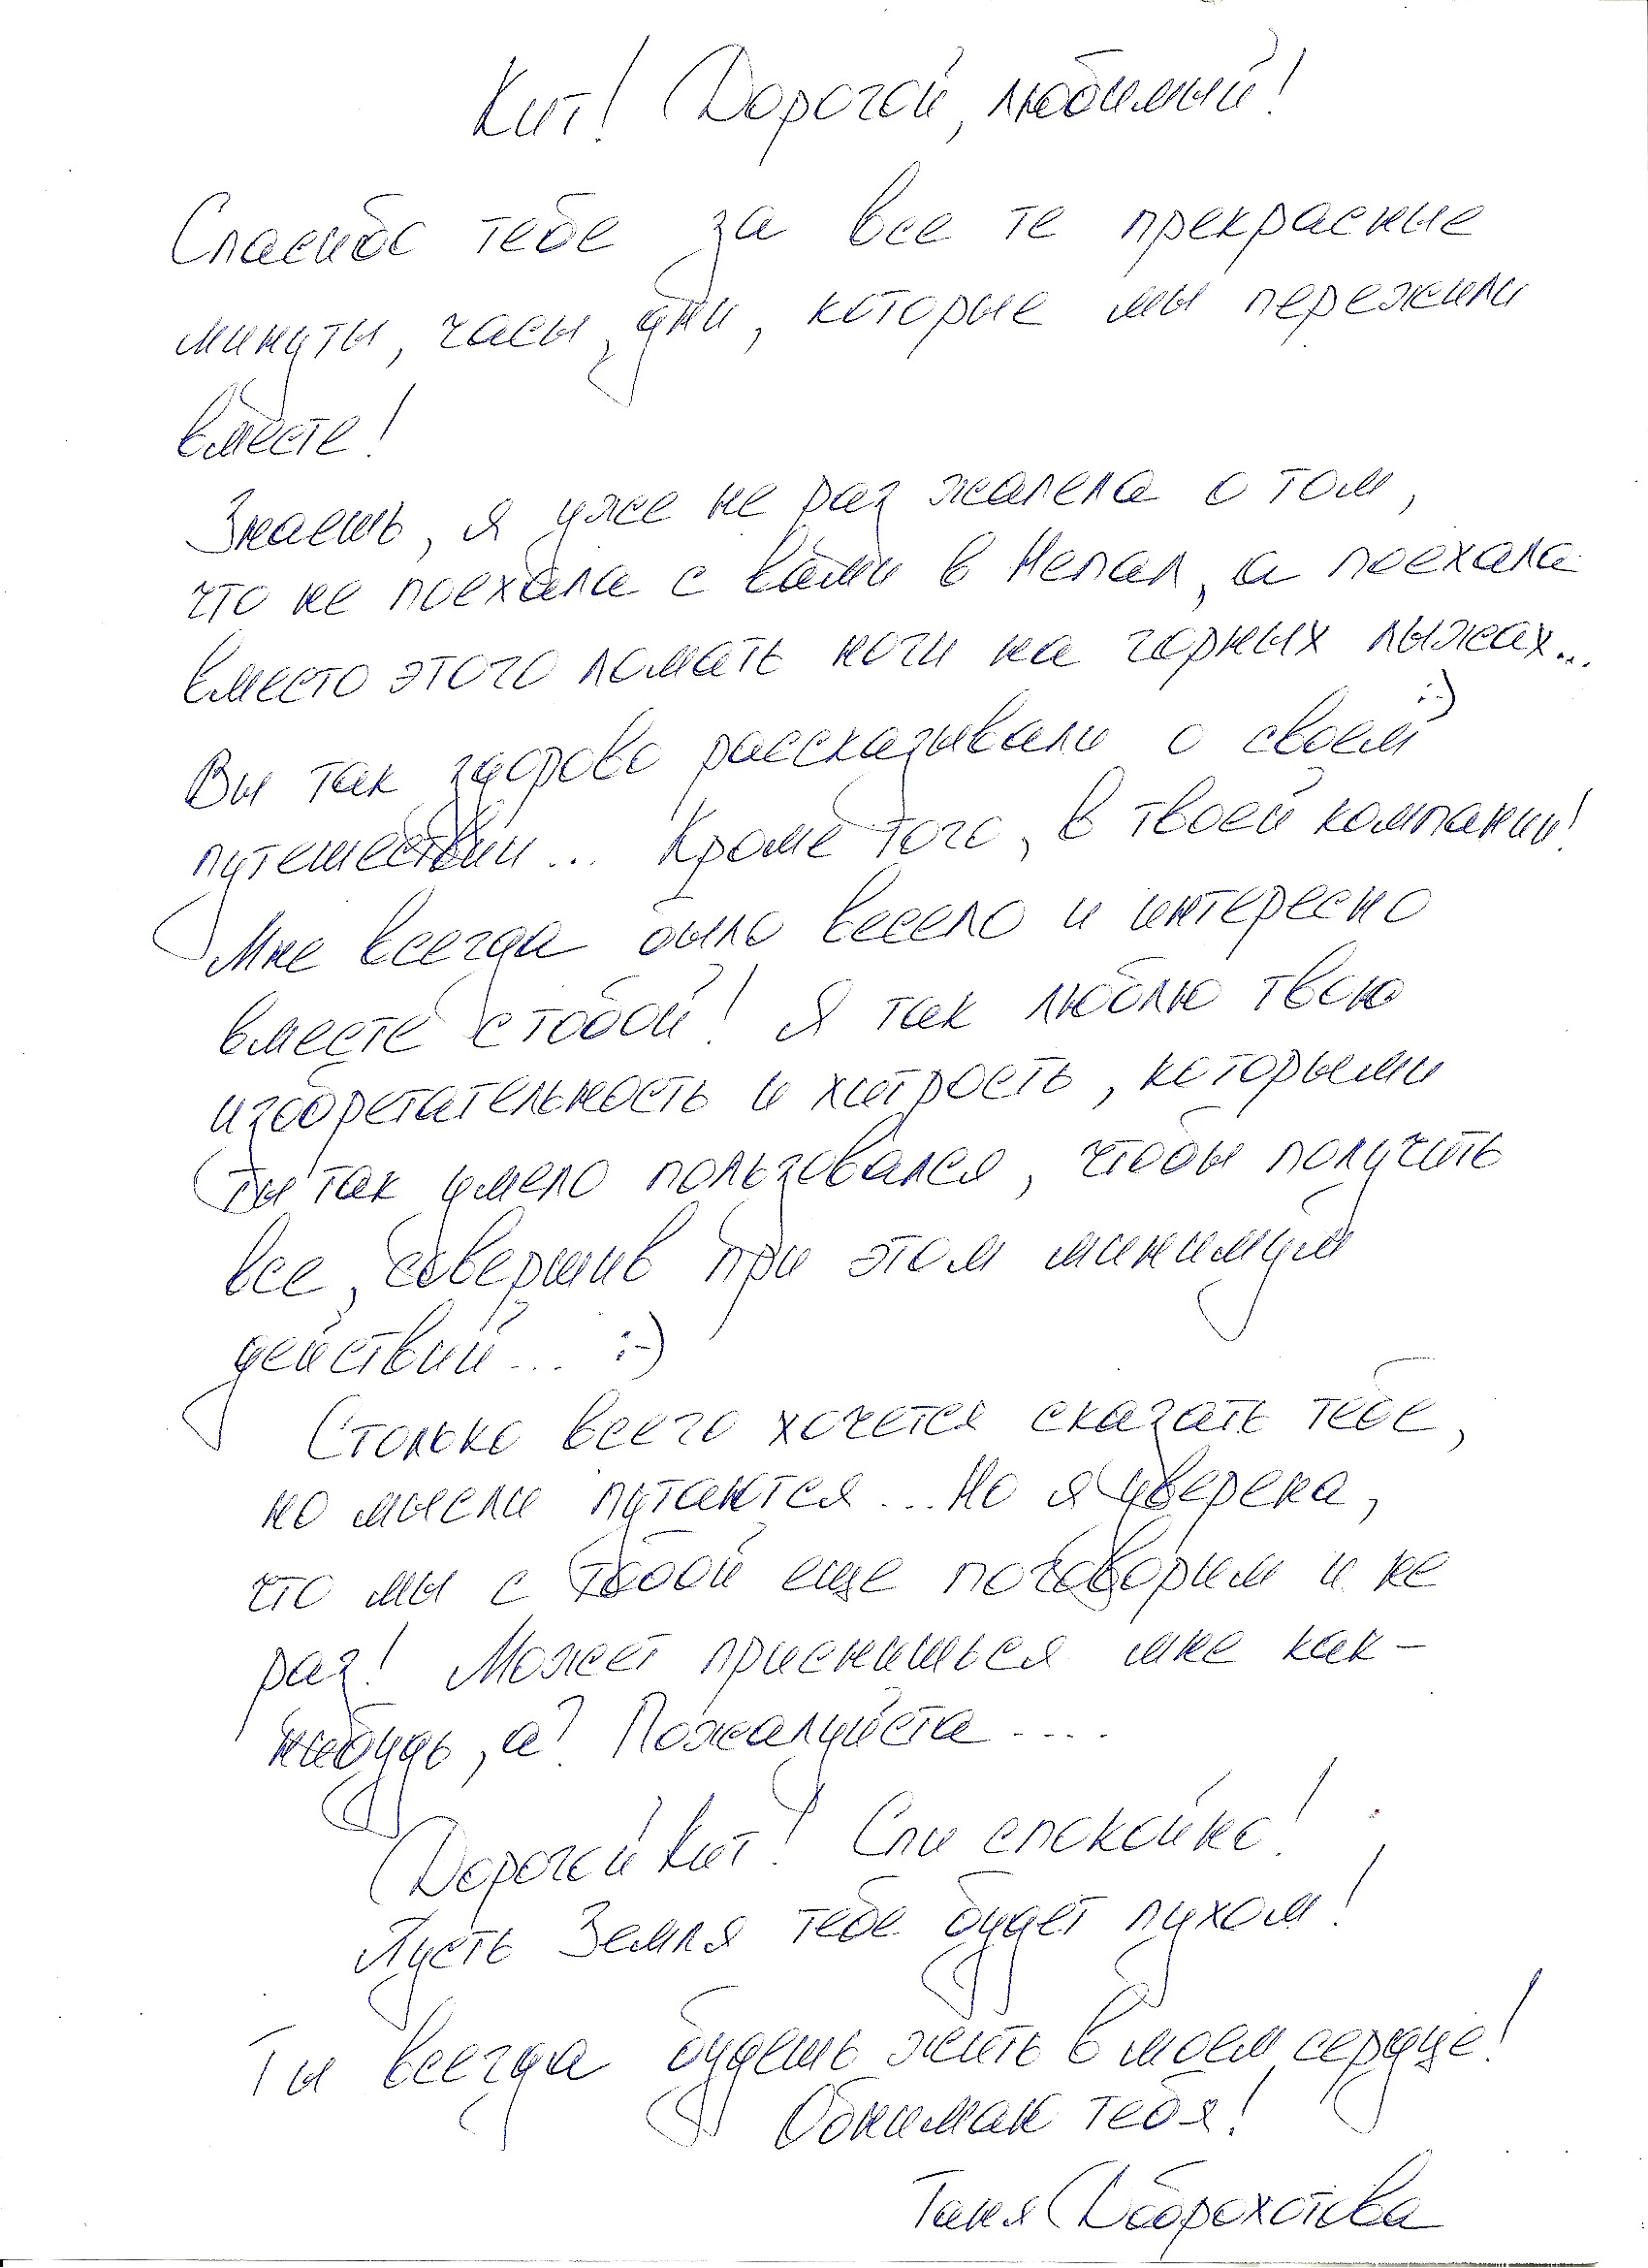 Кит! Дорогой, любимый!
Спасибо тебе за все те прекрасные
минуты, часы, дни, которые мы пережили
вместе!
Знаешь, я уже не раз жалела о том,
что не поехала с вами в Непал, а поехала
вместо этого ломать ноги на горных лыжах...
:-)
Вы так здорово рассказывали о своем
путешествии... Кроме того, в твоей компании!
Мне всегда было весело и интересно
вместе с тобой! Я так люблю твою
изобретательность и хитрость, которыми
ты так умело пользовался, чтобы получить
все, совершив при этом минимум
действий... :-)
Столько всего хочется сказать тебе,
но мысли путаются... Но я уверена,
что мы с тобой еще поговорим и не
раз! Может приснишься мне как-
нибудь, а? Пожалуйста....
Дорогой Кит! Спи спокойно!
Пусть Земля тебе будет пухом!
Ты всегда будешь жить в моем сердце!
Обнимаю тебя!
Таня Доброхотова